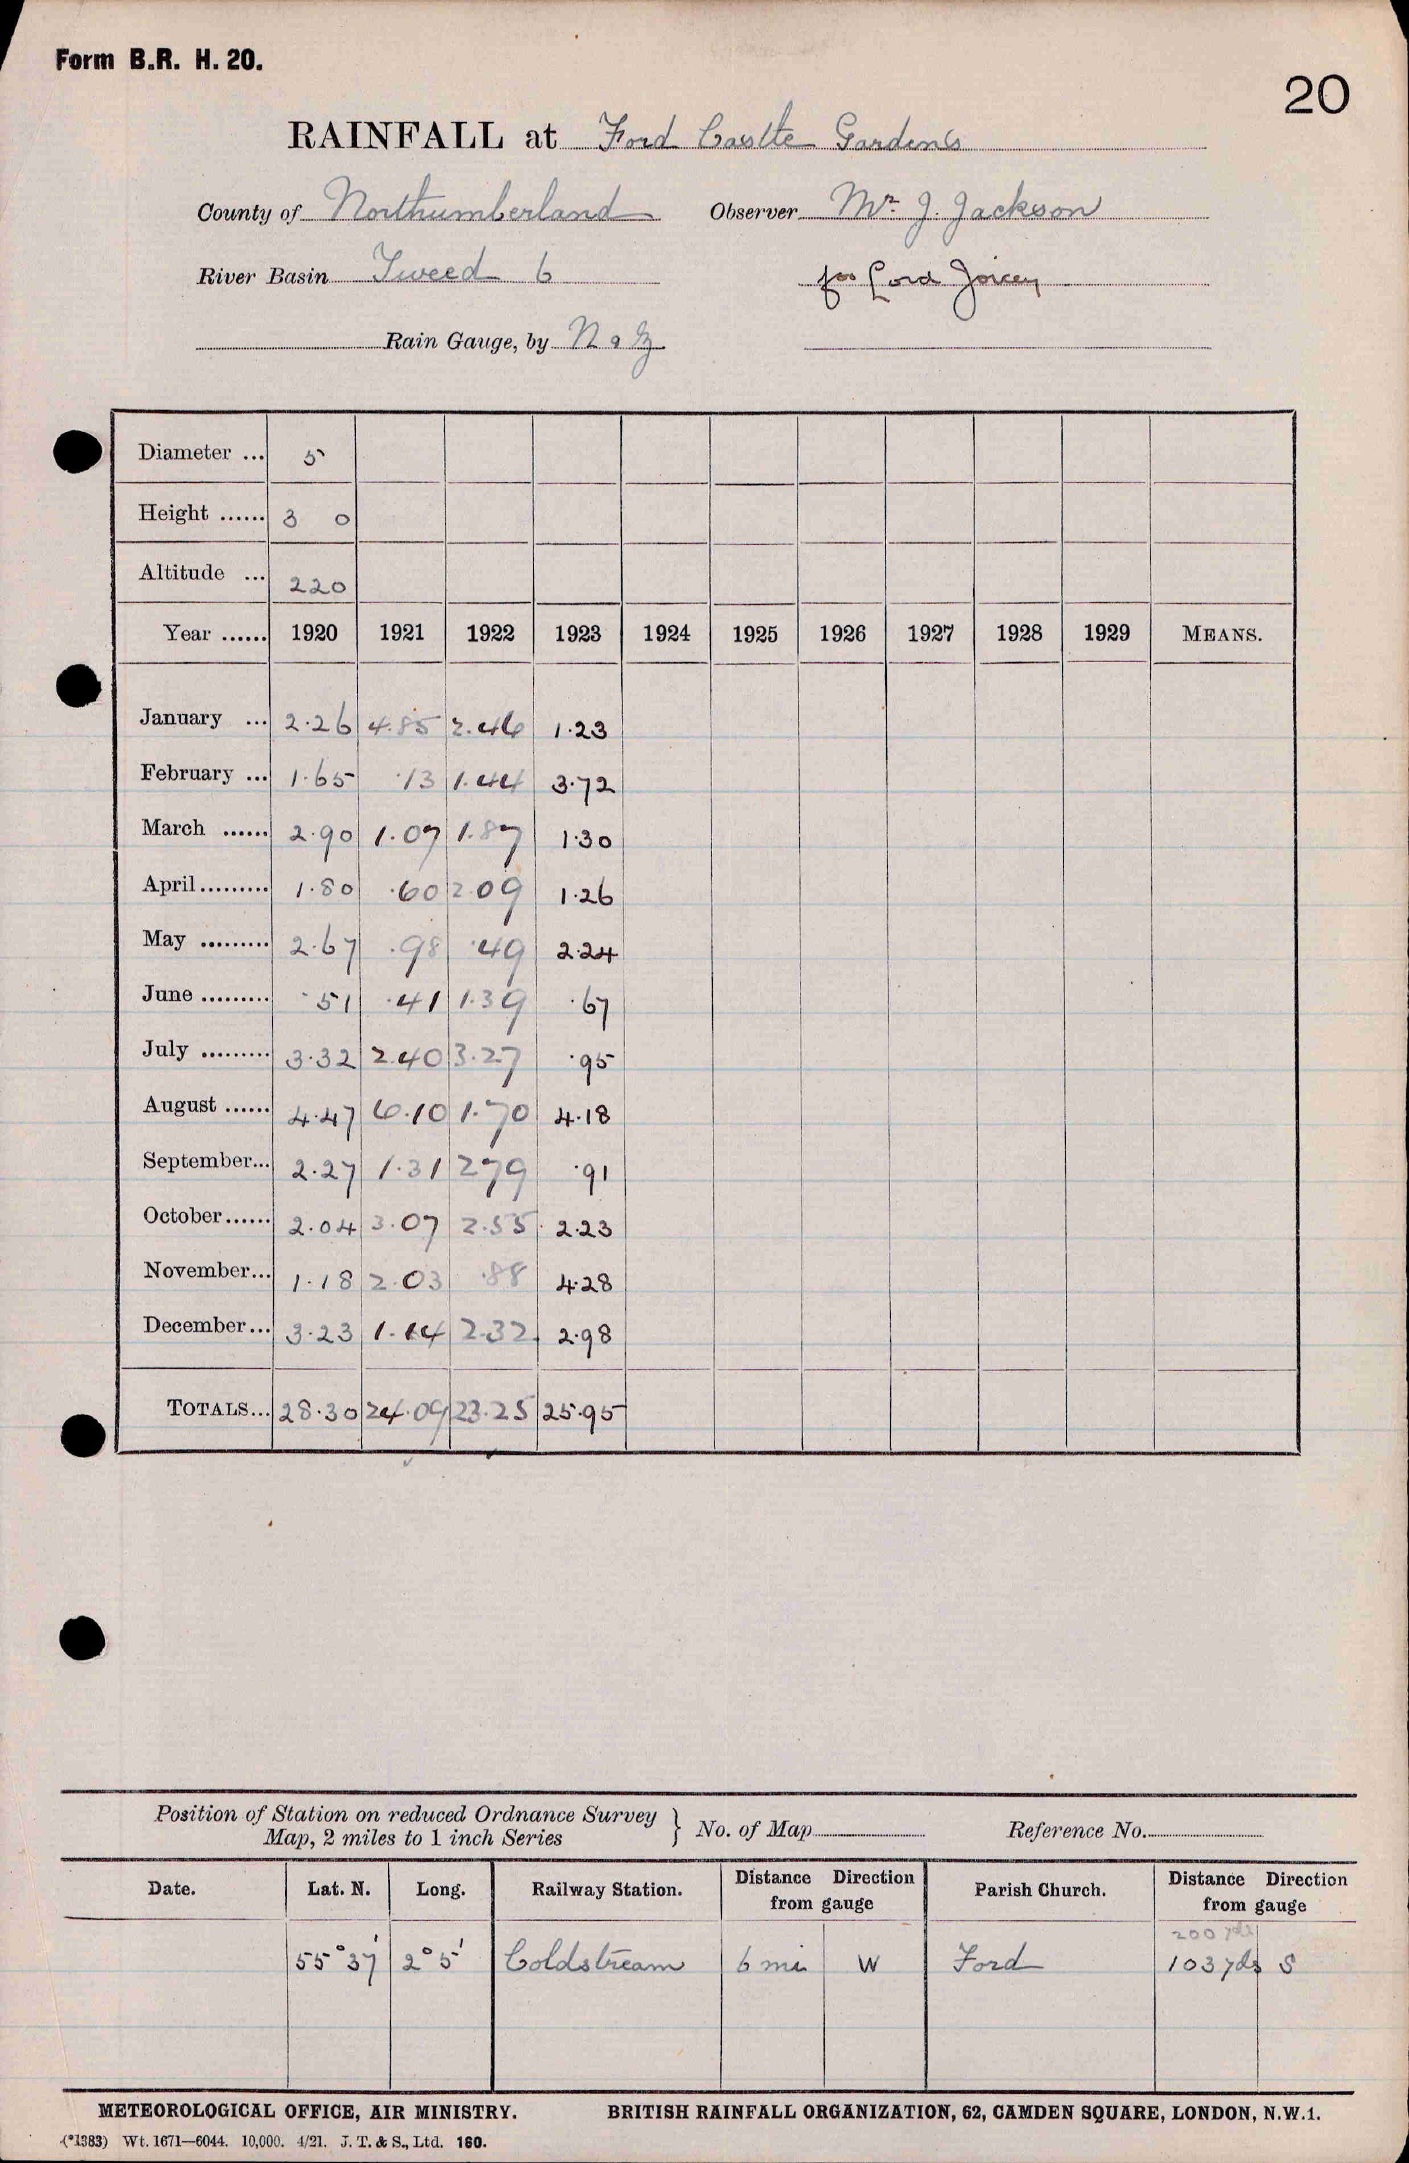 Form B.R. H. 20.
20
RAINFALL at Ford Castle Gardens
County of Northumberland Observer Mr. J. Jackson
River Basin Tweed 6 for Lord Joicey
Rain Gauge, by N & Z
Diameter ... 5
Height ...... 3 0
Altitude ... 220
Year ...... 1920 1921 1922 1923 1924 1925 1926 1927 1928 1929 MEANS.
January ... 2.26 4.85 2.46 1.23
February ... 1.65 .13 1.44 3.72
March ...... 2.90 1.07 1.87 1.30
April......... 1.80 .60 2.09 1.26
May ......... 2.67 .98 .49 2.24
June ......... .51 .41 1.39 .67
July ......... 3.32 2.40 3.27 .95
August ...... 4.47 6.10 1.70 4.18
September... 2.27 1.31 2.79 .91
October...... 2.04 3.07 2.55 2.23
November... 1.18 2.03 .88 4.28
December... 3.23 1.14 2.32 2.98
TOTALS... 28.30 24.09 23.25 25.95
Position of Station on reduced Ordnance Survey
Map, 2 miles to 1 inch Series } No. of Map Reference No.
Date. Lat. N. Long. Railway Station. Distance Direction from gauge Parish Church. Distance Direction from gauge
200 yds
55° 37' 2° 5' Coldstream 6 mi W Ford 103 yds S
METEOROLOGICAL OFFICE, AIR MINISTRY. BRITISH RAINFALL ORGANIZATION, 62, CAMDEN SQUARE, LONDON, N.W.1.
(*1383) Wt. 1671—6044. 10,000. 4/21. J. T. & S., Ltd. 160.